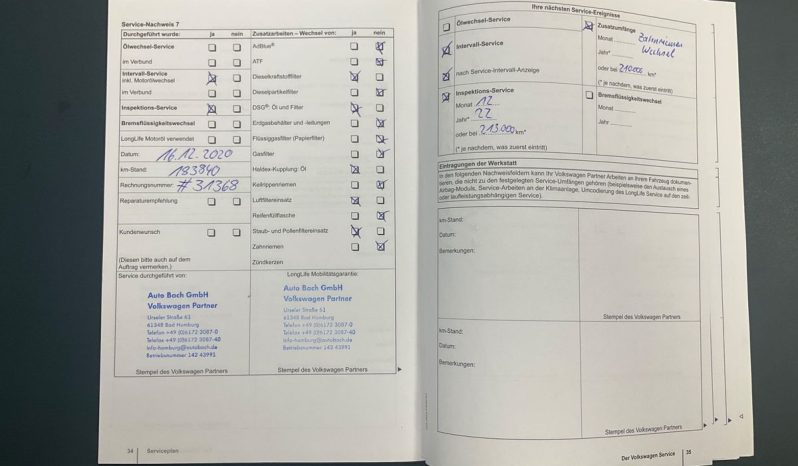 Service-Nachweis 7
Durchgeführt wurde: ja nein
Ölwechsel-Service
im Verbund
Intervall-Service
inkl. Motorölwechsel
im Verbund
Inspektions-Service
Bremsflüssigkeitswechsel
LongLife Motoröl verwendet
Datum: 16.12.2020
km-Stand: 183840
Rechnungsnummer: #31368
Reparaturempfehlung
Kundenwunsch
(Diesen bitte auch auf dem
Auftrag vermerken.)
Zusatzarbeiten – Wechsel von: ja nein
AdBlue®
ATF
Dieselkraftstofffilter
Dieselpartikelfilter
DSG®: Öl und Filter
Erdgasbehälter und -leitungen
Flüssiggasfilter (Papierfilter)
Gasfilter
Haldex-Kupplung: Öl
Keilrippenriemen
Luftfiltereinsatz
Reifenfüllflasche
Staub- und Pollenfiltereinsatz
Zahnriemen
Zündkerzen
Service durchgeführt von:
Auto Bach GmbH
Volkswagen Partner
Urseler Straße 61
61348 Bad Homburg
Telefon +49 (0)6172 3087-0
Telefax +49 (0)6172 3087-40
info-homburg@autobach.de
Betriebsnummer 143 43991
Stempel des Volkswagen Partners
LongLife Mobilitätsgarantie:
Auto Bach GmbH
Volkswagen Partner
Urseler Straße 61
61348 Bad Homburg
Telefon +49 (0)6172 3087-0
Telefax +49 (0)6172 3087-40
info-homburg@autobach.de
Betriebsnummer 143 43991
Stempel des Volkswagen Partners
34 Serviceplan
Ihre nächsten Service-Ereignisse
Ölwechsel-Service
Intervall-Service
nach Service-Intervall-Anzeige
Inspektions-Service
Monat 12
Jahr* 22
oder bei 213.000 km*
(* je nachdem, was zuerst eintritt)
Zusatzumfänge
Monat Zahnriemen
Jahr* Wechsel
oder bei 210000 km*
(* je nachdem, was zuerst eintritt)
Bremsflüssigkeitswechsel
Monat
Jahr
Eintragungen der Werkstatt
In den folgenden Nachweisfeldern kann Ihr Volkswagen Partner Arbeiten an Ihrem Fahrzeug dokumen-
tieren, die nicht zu den festgelegten Service-Umfängen gehören (beispielsweise den Austausch eines
Airbag-Moduls, Service-Arbeiten an der Klimaanlage, Umcodierung des LongLife Service auf den zeit-
oder laufleistungsabhängigen Service).
km-Stand:
Datum:
Bemerkungen:
Stempel des Volkswagen Partners
km-Stand:
Datum:
Bemerkungen:
Stempel des Volkswagen Partners
Der Volkswagen Service 35